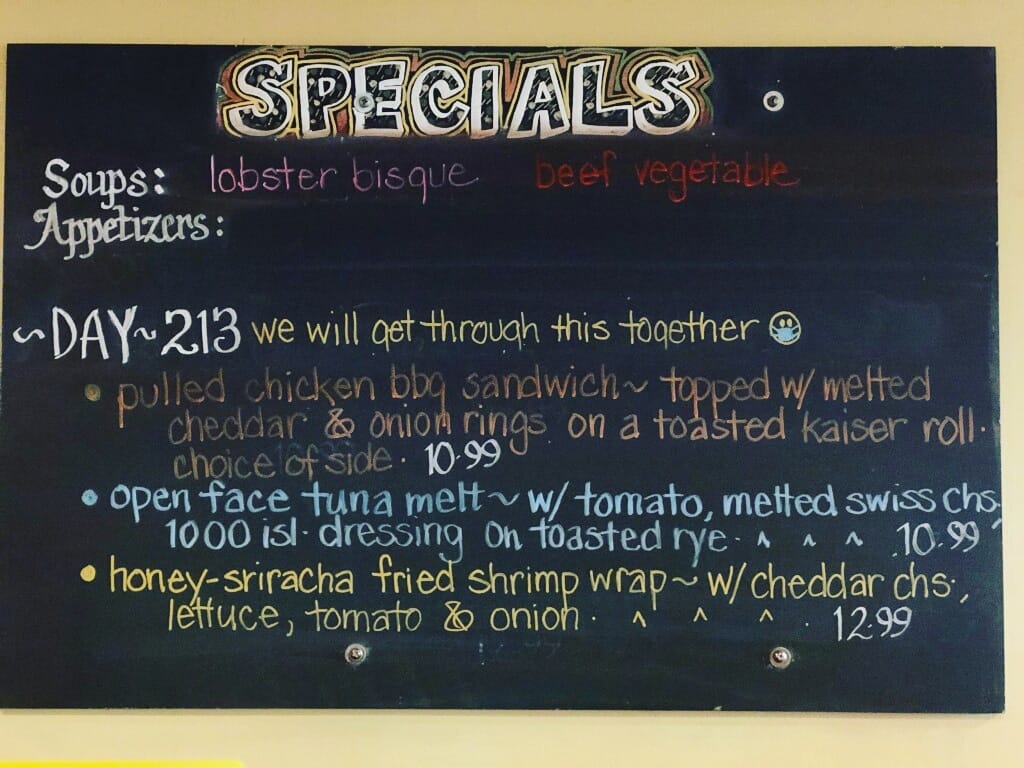 SPECIALS
Soups: lobster bisque beef vegetable
Appetizers:
~DAY~213 we will get through this together 😷
• pulled chicken bbq sandwich~ topped w/ melted
cheddar & onion rings on a toasted kaiser roll.
choice of side. 10.99
• open face tuna melt~ w/ tomato, melted swiss chs,
1000 isl. dressing on toasted rye. ^ ^ ^ .10.99
• honey-sriracha fried shrimp wrap~ w/ cheddar chs.,
lettuce, tomato & onion. ^ ^ ^ . 12.99